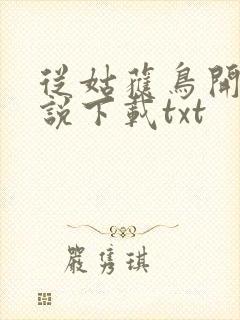 從姑獲鳥開
說下載txt
嚴雋琪